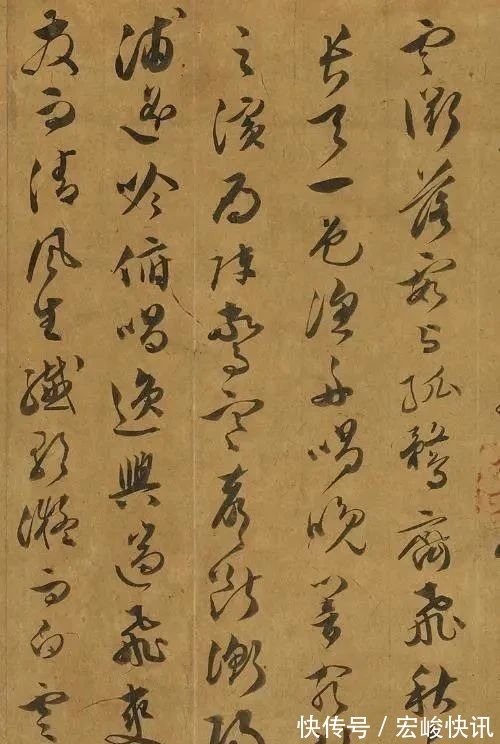 雲衢落霞与孤鶩齊飛秋
長天一色漁舟唱晚響窮
之濱雁陣驚寒聲斷衡陽
浦遥吟俯唱逸興遄飛爽
發而清風生纖歌凝而白雲
快传号 / 宏峻快讯